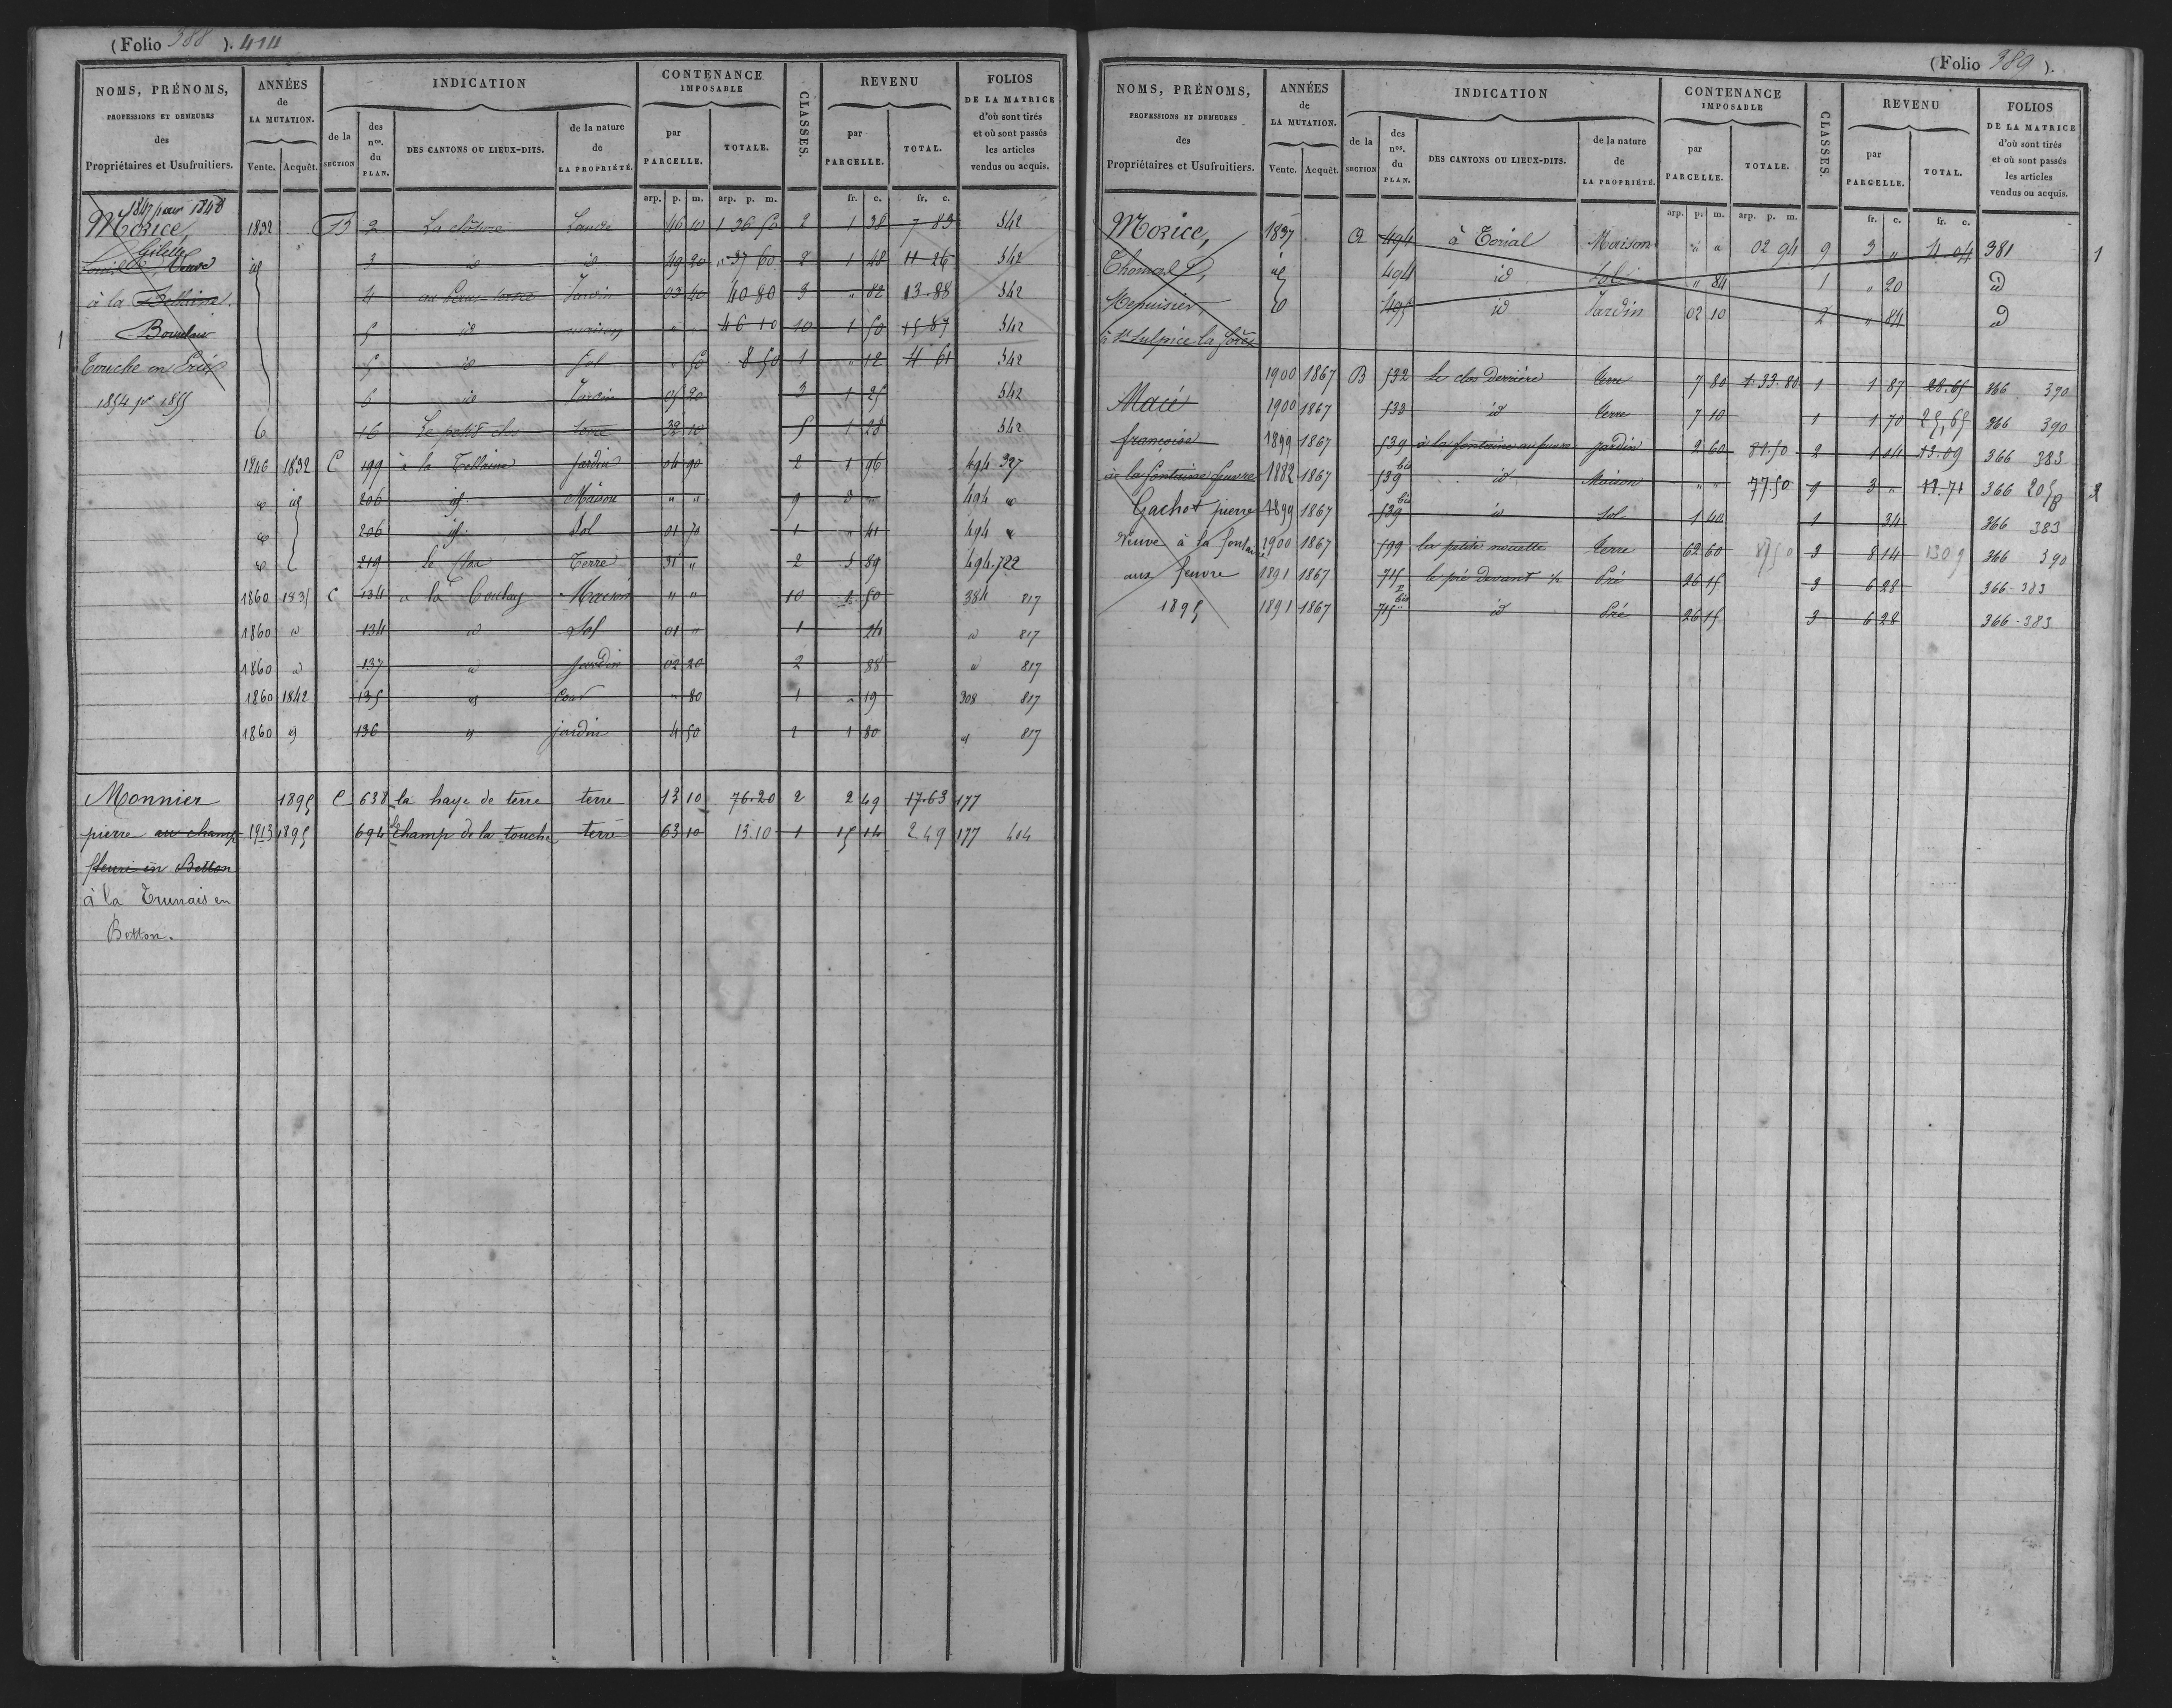 (Folio 388 ). 414
NOMS, PRÉNOMS, PROFESSIONS ET DEMEURES des Propriétaires et Usufruitiers.
ANNÉES de LA MUTATION. Vente. Acquêt.
INDICATION de la SECTION des nos. du PLAN. DES CANTONS OU LIEUX-DITS. de la nature de LA PROPRIÉTÉ.
CONTENANCE IMPOSABLE par PARCELLE. TOTALE.
CLASSES.
REVENU par PARCELLE. TOTAL.
FOLIOS DE LA MATRICE d'où sont tirés et où sont passés les articles vendus ou acquis.
arp. p. m. arp. p. m. fr. c. fr. c.
1847 pour 1848
Morice, 1832 B 2 La clôture Lande 46 10 1 36 50 2 1 38 7 83 542
Gilette
Veuve id 3 id id 49 20 " 37 60 2 1 48 11 26 542
à la 4 Jardin 03 40 40 80 3 " 82 13 88 542
5 id maison " " 46 10 10 1 50 15 87 542
1
5 id Sol " 50 8 50 1 " 12 4 61 542
Touche en
6 id Jardin 05 20 3 1 25 542
1854 pr 1855
16 Le petit clos terre 32 10 5 1 28 542
1846 1832 C 199 à la Jardin 04 90 2 1 96 494 327
id 206 id Maison " " 9 3 " 494 "
206 id Sol 01 70 1 " 41 494 "
219 le clos Terre 31 " 2 5 89 494 722
1860 1835 C 134 à la Maison " " 10 1 50 384 817
1860 id 134 id Sol 01 " 1 24 id 817
1860 id 137 id jardin 02 20 2 88 id 817
1860 1842 135 id Cour " 80 1 " 19 308 817
1860 id 136 id jardin 4 50 2 1 80 id 817
Monnier 1895 C 638 la haye de terre terre 13 10 76.20 2 2 49 17.63 177
pierre au champ 1913 1895 694 le champ de la touche terre 63 10 13.10 1 15 14 2 49 177 404
fleuri en Betton
à la Trunais en
Betton.
(Folio 389 ).
NOMS, PRÉNOMS, PROFESSIONS ET DEMEURES des Propriétaires et Usufruitiers.
ANNÉES de LA MUTATION. Vente. Acquêt.
INDICATION de la SECTION des nos. du PLAN. DES CANTONS OU LIEUX-DITS. de la nature de LA PROPRIÉTÉ.
CONTENANCE IMPOSABLE par PARCELLE. TOTALE.
CLASSES.
REVENU par PARCELLE. TOTAL.
FOLIOS DE LA MATRICE d'où sont tirés et où sont passés les articles vendus ou acquis.
arp. p. m. arp. p. m. fr. c. fr. c.
Morice, 1837 A 494 à Torial Maison " " 02 94 9 3 " 4.04 381 1
Thomas id 494 id Sol " 84 1 " 20 id
Menuisier, 495 id Jardin 02 10 2 " 84 id
à St Sulpice la forêt
1900 1867 B 532 Le clos derrière terre 7 80 1.33.80 1 1 87 28.65 366 390
Macé 1900 1867 533 id terre 7 10 1 1 70 25,65 366 390
françoise 1899 1867 539 à la fontaine au feuvre jardin 2 60 81.50 2 1 04 13.09 366 383
à la fontaine feuvre 1882 1867 539 bis id Maison " " 77.50 9 3 " 366 205 2
Gachot pierre 1899 1867 539 bis id sol 1 40 1 34 366 383
veuve à la fontaine 1900 1867 599 la petite nouette terre 62 60 3 8 14 1309 366 390
aux feuvre 1891 1867 715 le pré devant ½ Pré 26 15 3 6 28 366-383
1895 1891 1867 715 bis id Pré 26 15 3 6 28 366-383